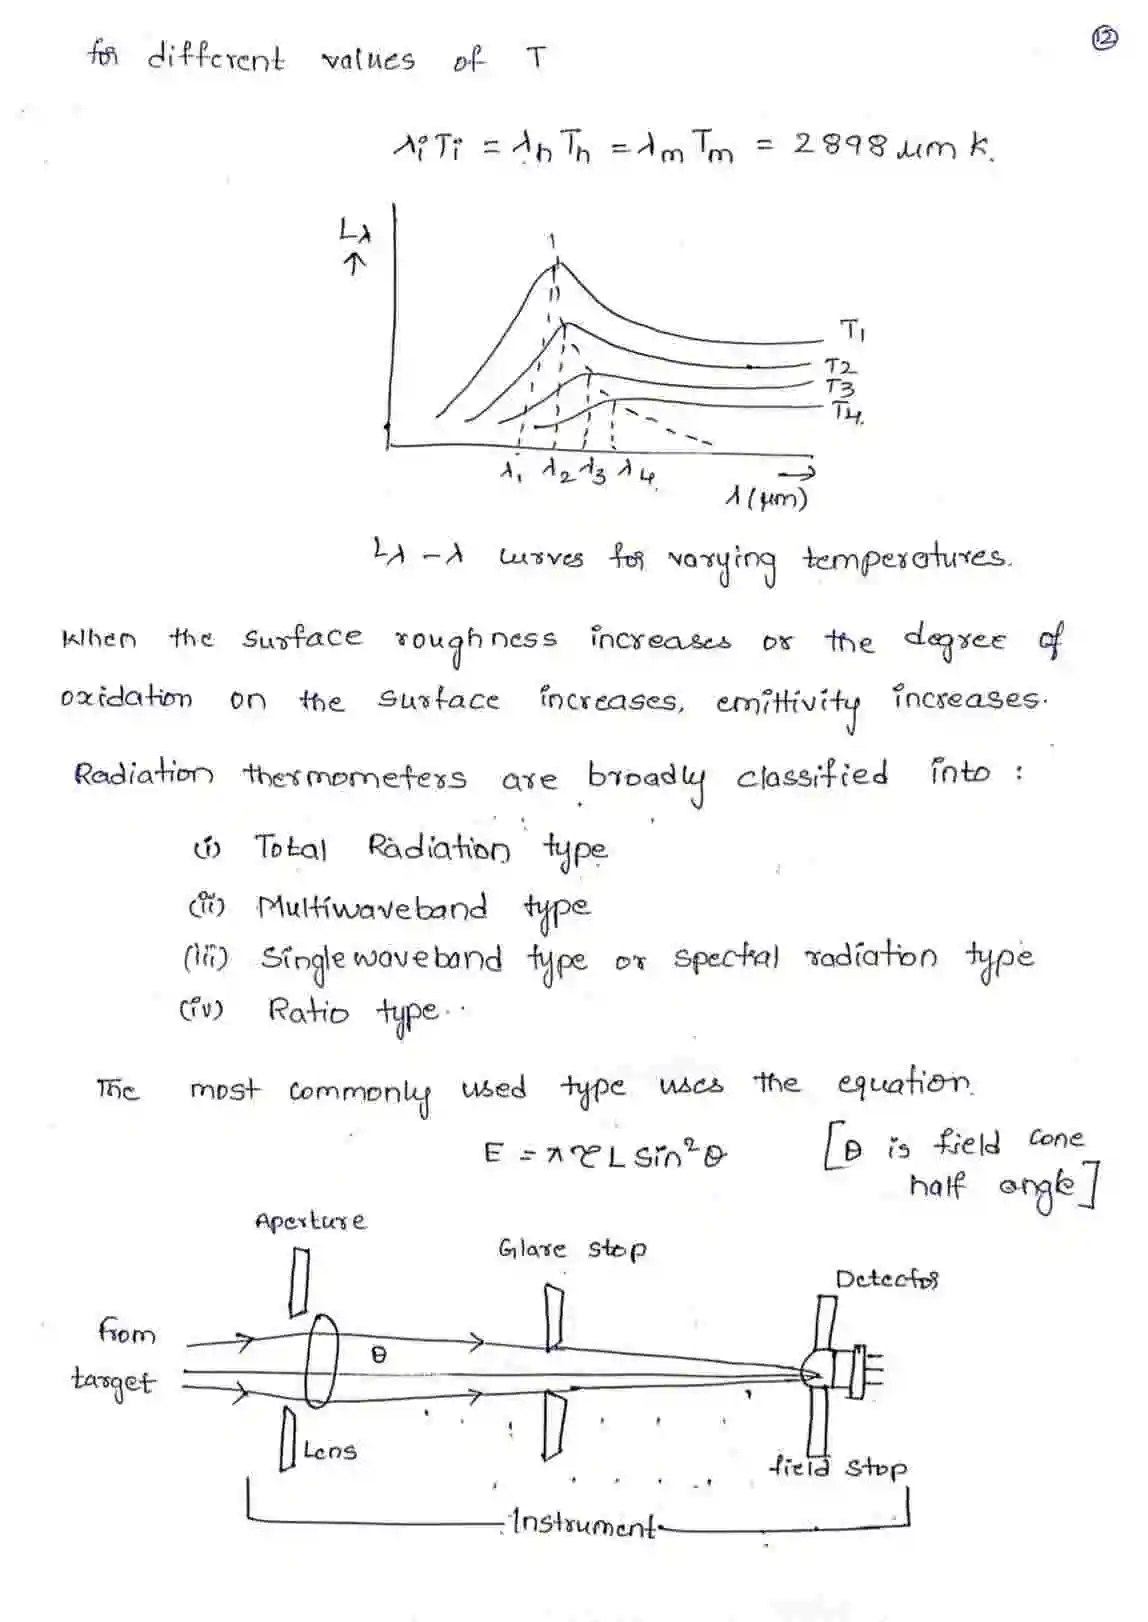 12
for different values of T
λiTi = λnTn = λmTm = 2898 μm k.
Lλ
↑
T1
T2
T3
T4.
λ1 λ2 λ3 λ4
→
λ(μm)
Lλ – λ curves for varying temperatures.
When the surface roughness increases or the degree of
oxidation on the surface increases, emittivity increases.
Radiation thermometers are broadly classified into :
(i) Total Radiation type
(ii) Multiwaveband type
(iii) Single waveband type or spectral radiation type
(iv) Ratio type..
The most commonly used type uses the equation.
E = π τ L sin²θ [θ is field cone
half angle]
Aperture
Glare stop
Detector
from
target
θ
Lens
field stop
Instrument